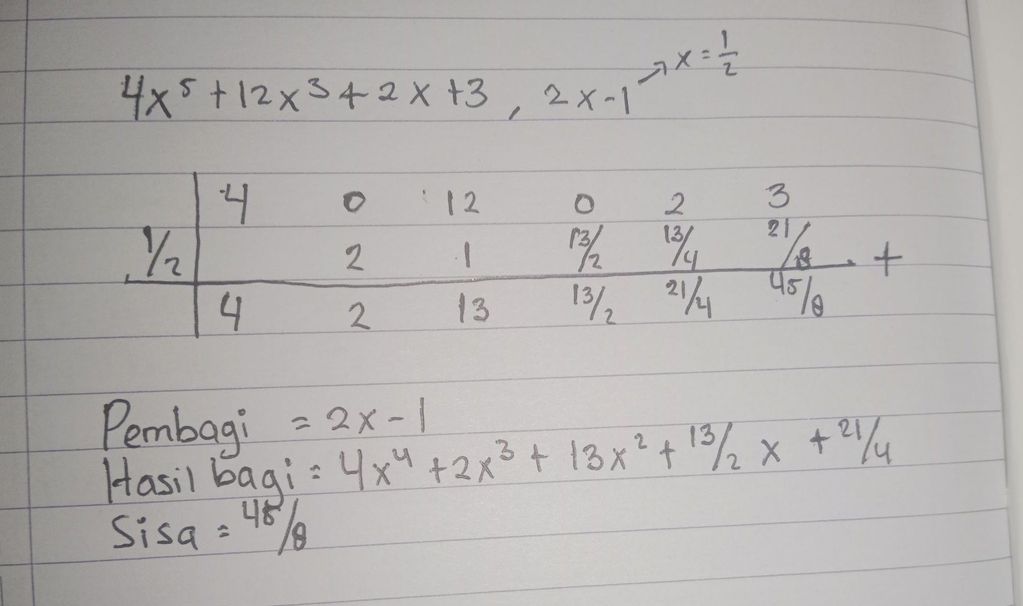 4x⁵ + 12x³ + 2x + 3 , 2x - 1 → x = 1/2
4 0 12 0 2 3
1/2 2 1 13/2 13/4 21/8 +
4 2 13 13/2 21/4 45/8
Pembagi = 2x - 1
Hasil bagi = 4x⁴ + 2x³ + 13x² + 13/2 x + 21/4
Sisa = 45/8